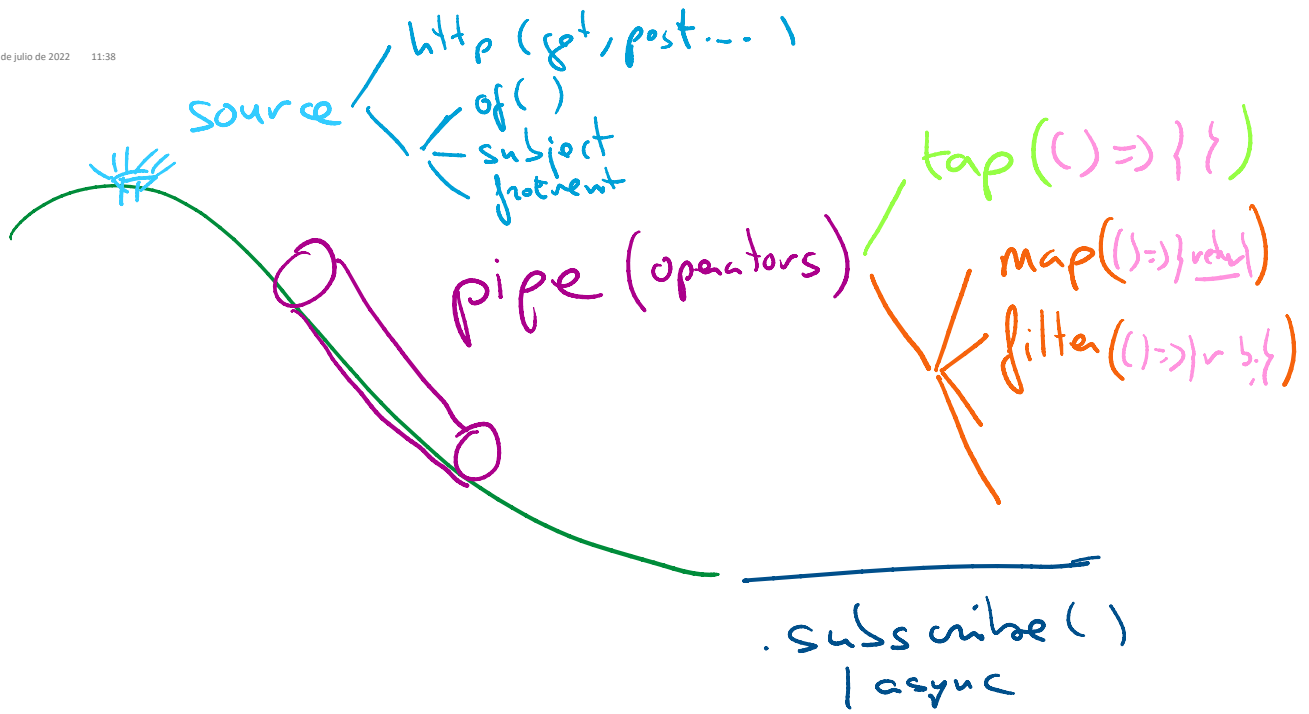 de julio de 2022 11:38
http (get, post.... )
source
of( )
subject
fromEvent
tap(()=>{ })
pipe (operators)
map(()=>{return})
filter(()=>{r b.})
.subscribe( )
| async